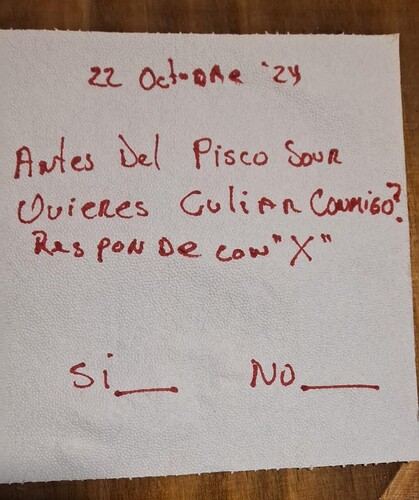 22 Octubre '24
Antes Del Pisco Sour
Quieres Culiar Conmigo?
Responde con "X"
Si___ No____